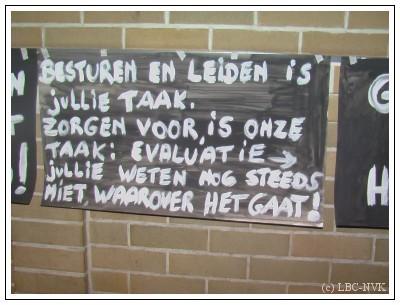 BESTUREN EN LEIDEN IS
jullie TAAK.
ZORGEN VOOR, IS ONZE
TAAK: EVALUATIE →
jullie WETEN NOG STEEDS
NIET, WAAROVER HET GAAT!
(c) LBC-NVK